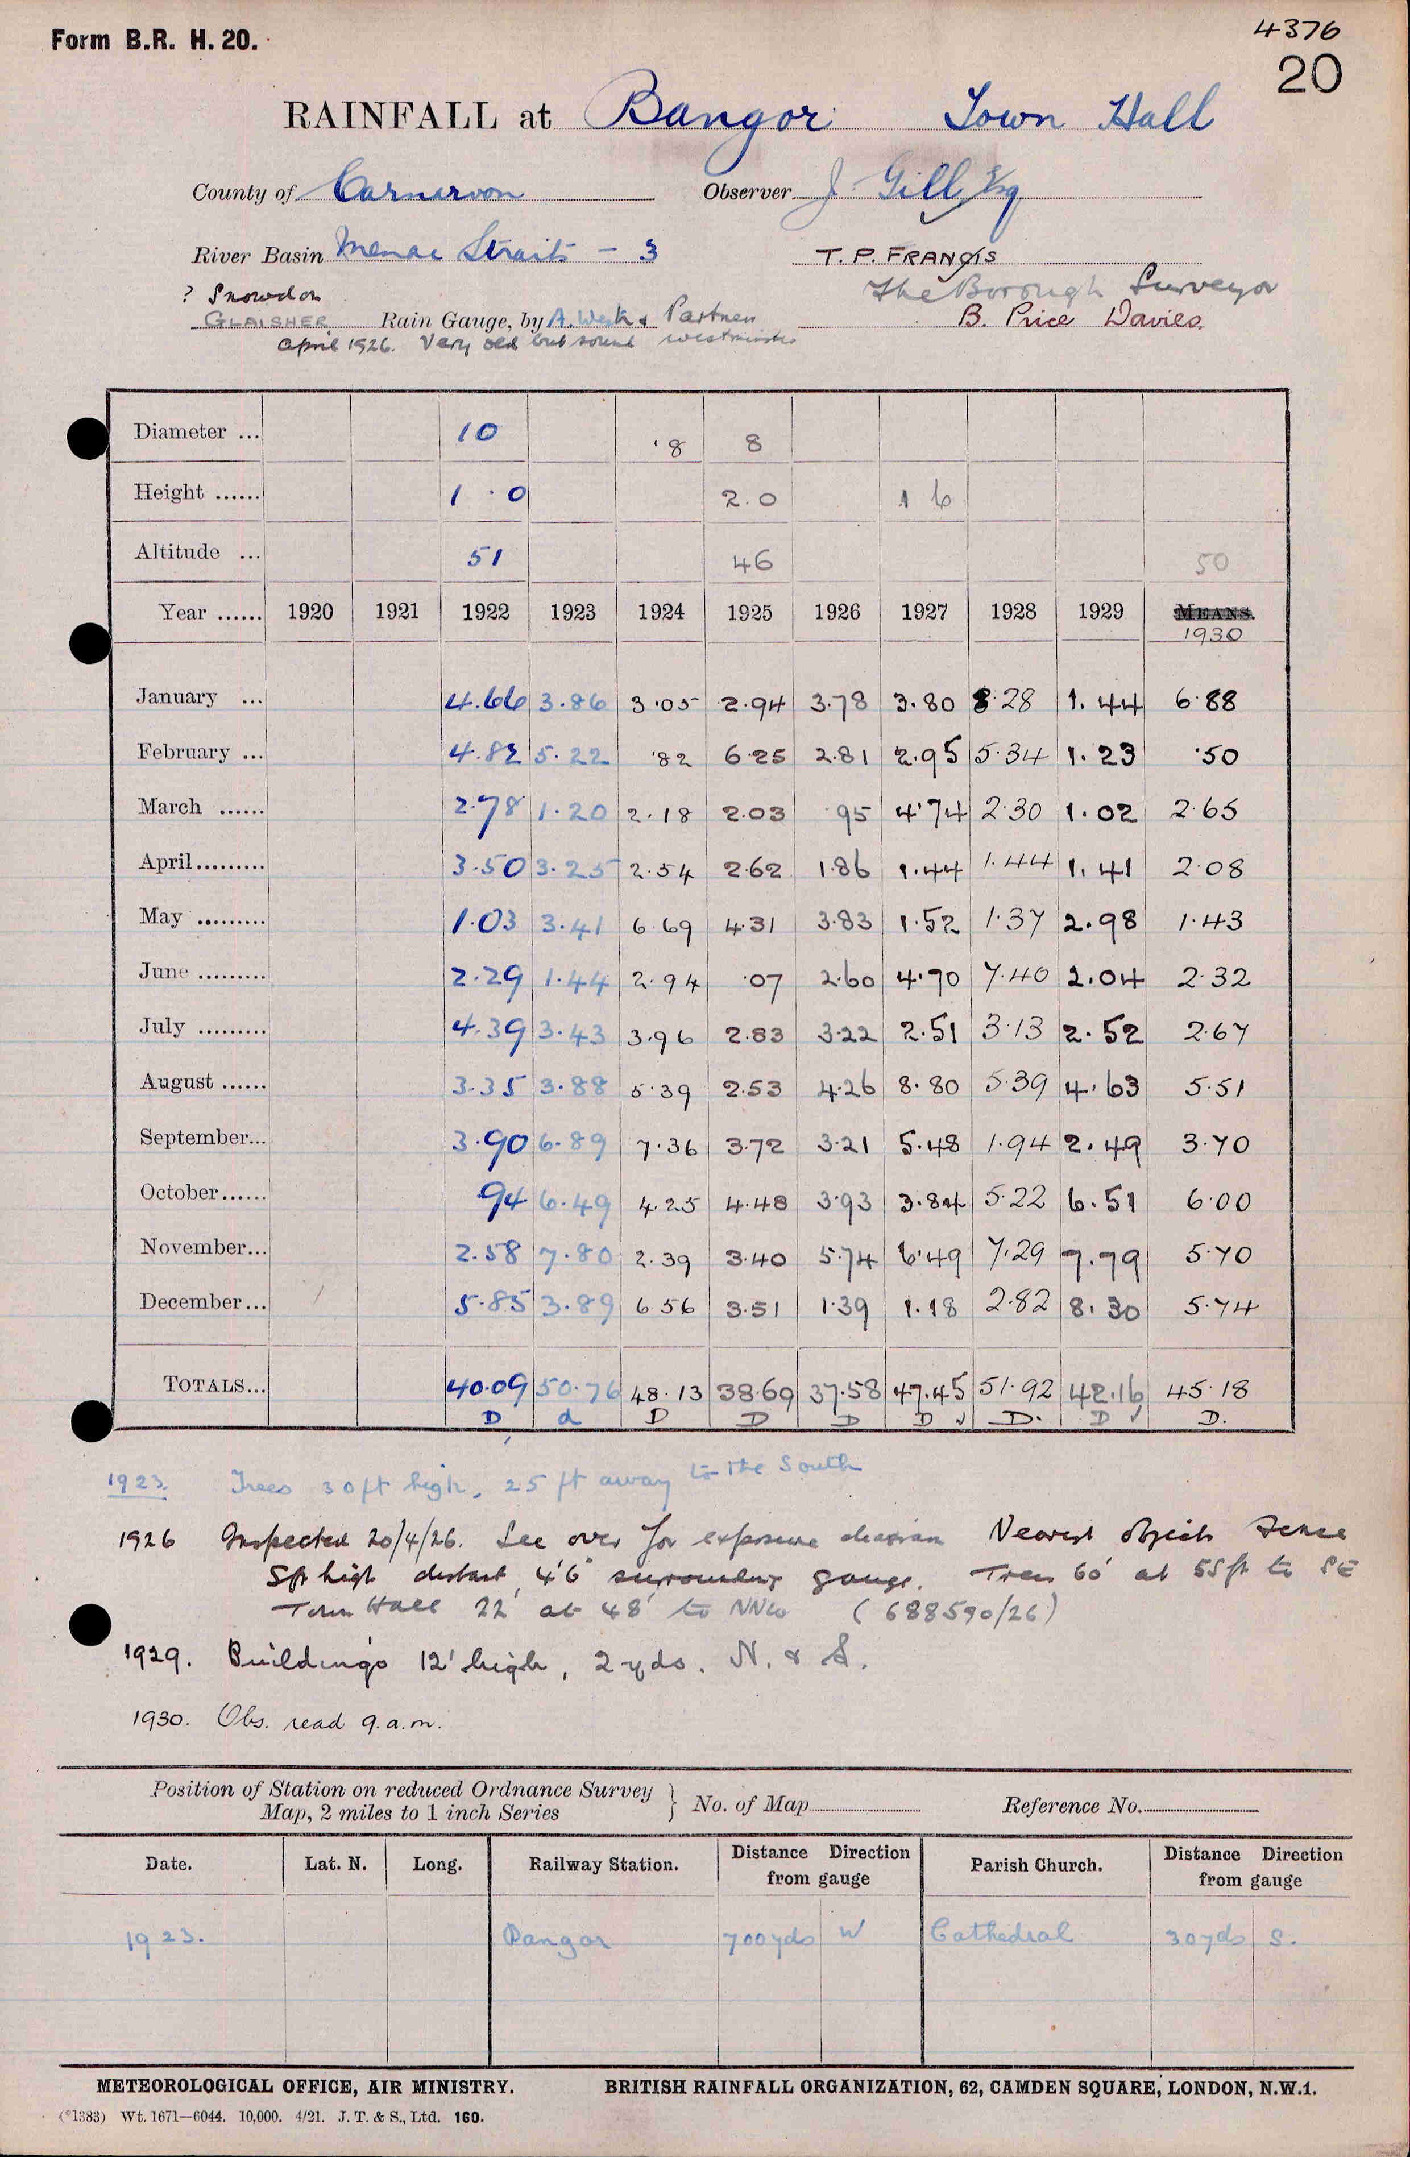 Form B.R. H. 20.
4376
20
RAINFALL at Bangor Town Hall
County of Carnarvon Observer J. Gill Esq
River Basin Menai Straits - 3 T. P. FRANCIS
? Snowdon The Borough Surveyor
GLAISHER Rain Gauge, by A. West & Partners B. Price Davies.
April 1926. Very old but sound Westminster
Diameter ... 10 8 8
Height ...... 1 . 0 2.0 1 6
Altitude ... 51 46 50
Year ...... 1920 1921 1922 1923 1924 1925 1926 1927 1928 1929 MEANS.
1930
January ... 4.66 3.86 3.05 2.94 3.78 3.80 8.28 1.44 6.88
February ... 4.82 5.22 .82 6.25 2.81 2.95 5.34 1.23 .50
March ...... 2.78 1.20 2.18 2.03 .95 4.74 2.30 1.02 2.65
April......... 3.50 3.25 2.54 2.62 1.86 1.44 1.44 1.41 2.08
May ......... 1.03 3.41 6.69 4.31 3.83 1.52 1.37 2.98 1.43
June ......... 2.29 1.44 2.94 .07 2.60 4.70 7.40 2.04 2.32
July ......... 4.39 3.43 3.96 2.83 3.22 2.51 3.13 2.52 2.67
August ...... 3.35 3.88 5.39 2.53 4.26 8.80 5.39 4.63 5.51
September... 3.90 6.89 7.36 3.72 3.21 5.48 1.94 2.49 3.70
October...... .94 6.49 4.25 4.48 3.93 3.84 5.22 6.51 6.00
November... 2.58 7.80 2.39 3.40 5.74 6.49 7.29 7.79 5.70
December... 5.85 3.89 6.56 3.51 1.39 1.18 2.82 8.30 5.74
TOTALS... 40.09 50.76 48.13 38.69 37.58 47.45 51.92 42.16 45.18
D d D D D D ✓ D. D ✓ D.
1923. Trees 30ft high, 25 ft away to the South
1926 Inspected 20/4/26. See over for exposure Nearest objects Fence
5ft high distant 4'6" surrounding gauge. Trees 60' at 55ft to SE
Town Hall 22' at 48' to NNW (688590/26)
1929. Buildings 12' high, 2 yds. N. & S.
1930. Obs. read 9.a.m.
Position of Station on reduced Ordnance Survey
Map, 2 miles to 1 inch Series } No. of Map Reference No.
Date. Lat. N. Long. Railway Station. Distance Direction from gauge Parish Church. Distance Direction from gauge
1923. Bangor 700yds W Cathedral 30yds S.
METEOROLOGICAL OFFICE, AIR MINISTRY. BRITISH RAINFALL ORGANIZATION, 62, CAMDEN SQUARE, LONDON, N.W.1.
(*1383) Wt. 1671—6044. 10,000. 4/21. J. T. & S., Ltd. 160.